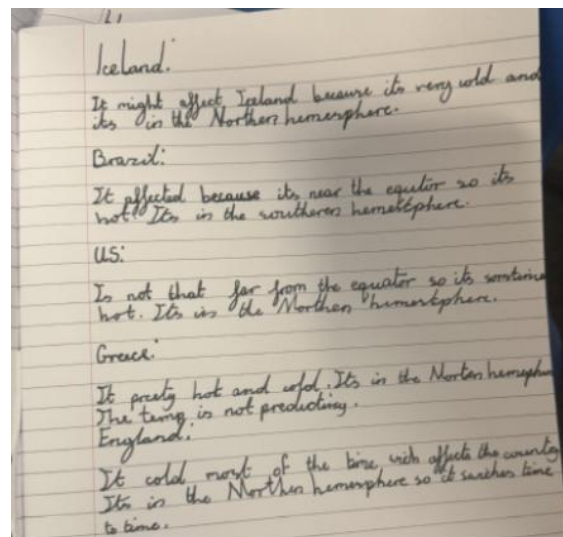 Iceland:
It might affect Iceland because its very cold and
its in the Northern hemesphere.
Brazil:
It affected because its near the equtor so its
hot. Its in the southeren hemestphere.
US:
Is not that far from the equator so its sometime
hot. Its in the Northen himestphere.
Greece:
It prety hot and cold. Its in the Norten
The temp is not
England:
It cold most of the time wich affects the country
Its in the Northen hemersphere so it time
to time.